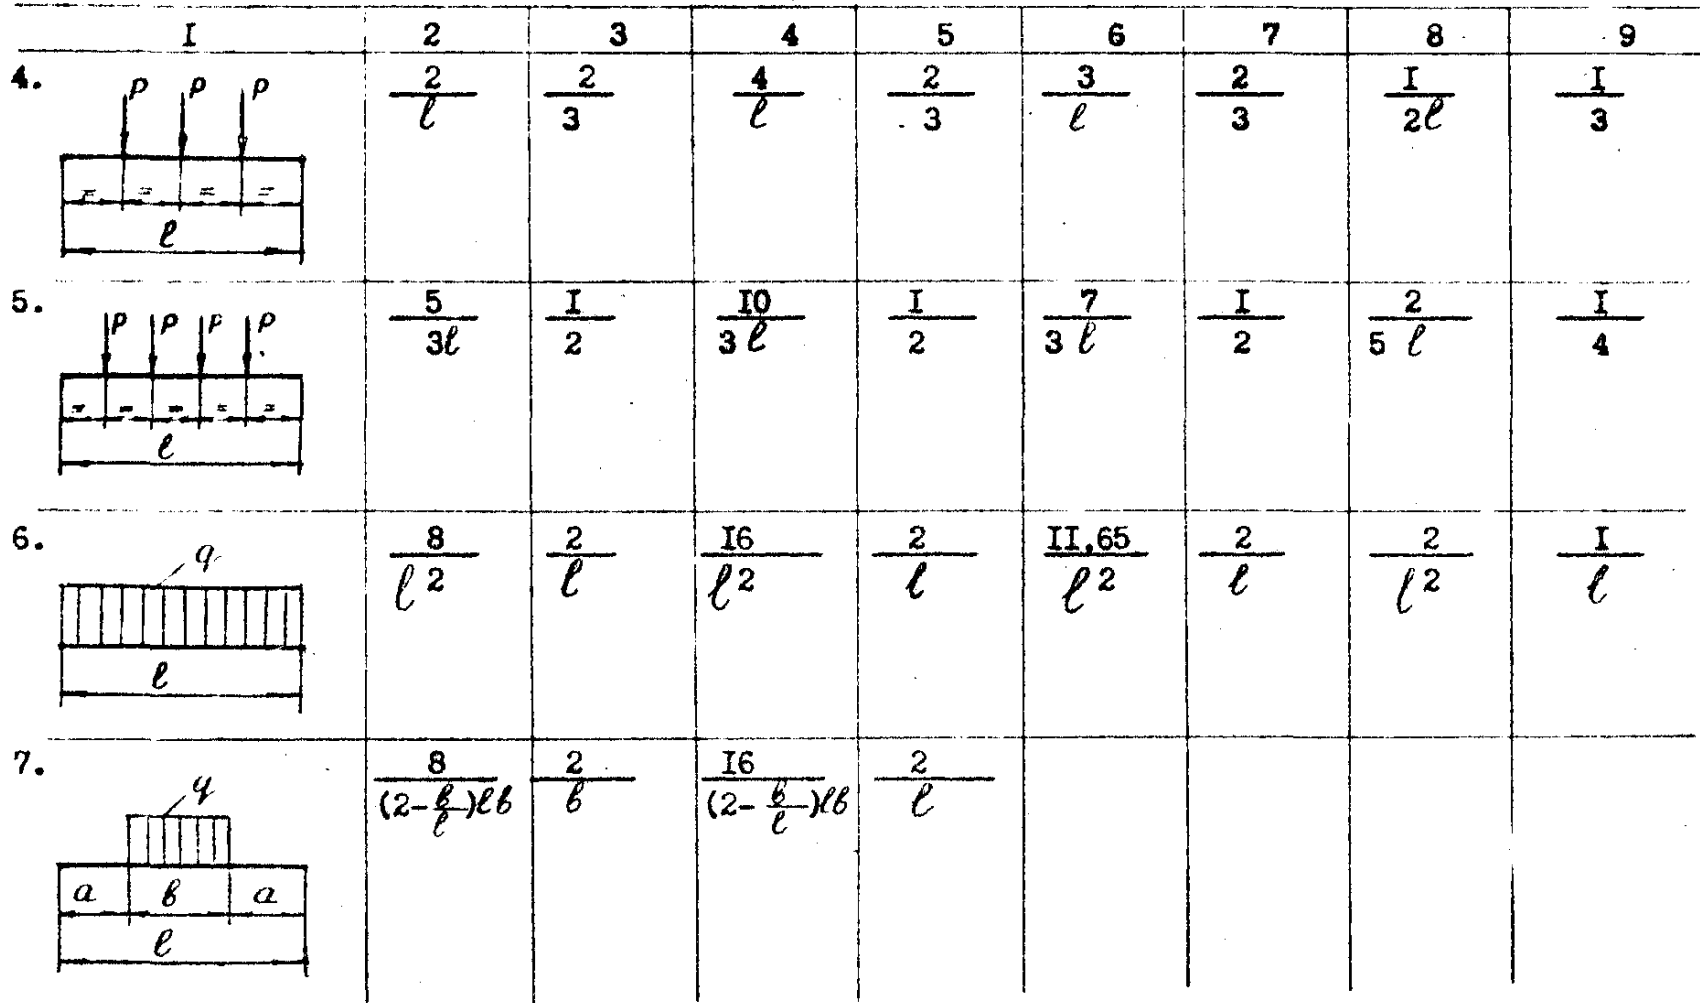 I 2 3 4 5 6 7 8 9
4. P P P 2/ℓ 2/3 4/ℓ 2/3 3/ℓ 2/3 I/2ℓ I/3
= = = =
ℓ
5. P P P P 5/3ℓ I/2 I0/3ℓ I/2 7/3ℓ I/2 2/5ℓ I/4
= = = = =
ℓ
6. q 8/ℓ² 2/ℓ I6/ℓ² 2/ℓ II,65/ℓ² 2/ℓ 2/ℓ² I/ℓ
ℓ
7. q 8/(2-в/ℓ)ℓв 2/в I6/(2-в/ℓ)ℓв 2/ℓ
a в a
ℓ